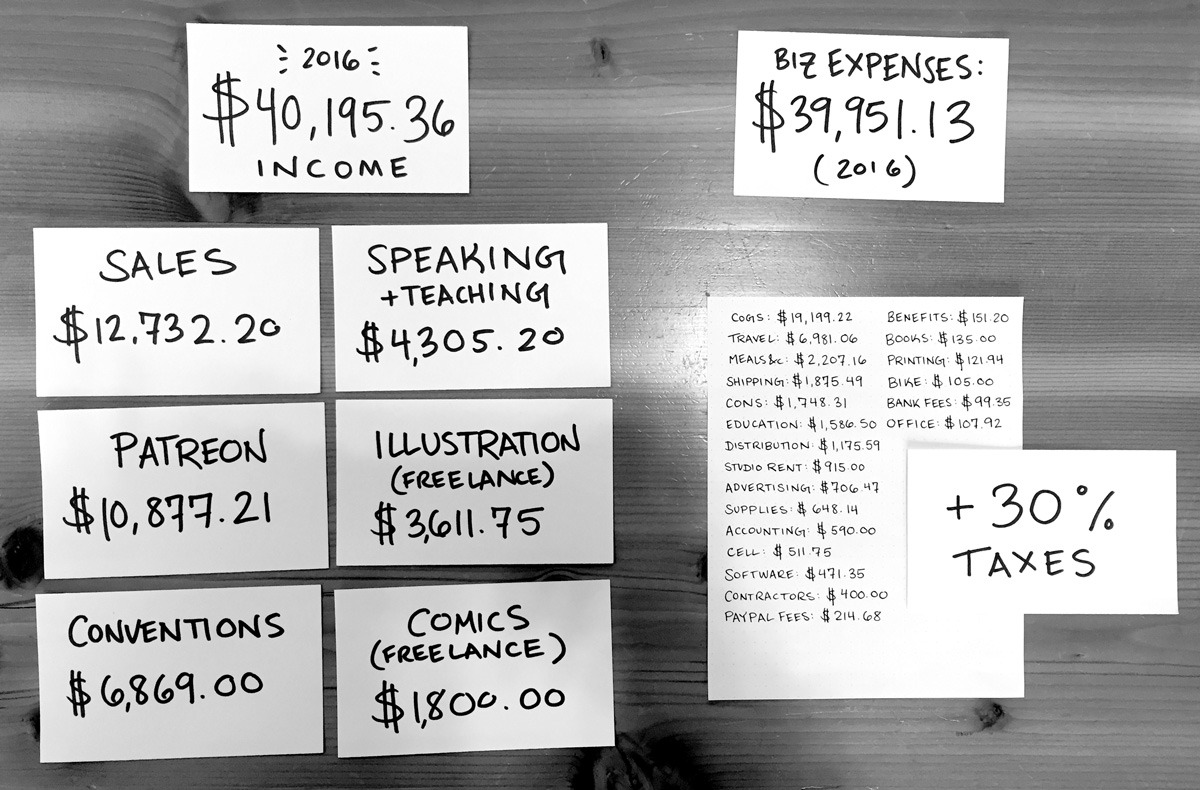 2016
$40,195.36
INCOME
BIZ EXPENSES:
$39,951.13
(2016)
SALES
$12,732.20
SPEAKING
+TEACHING
$4,305.20
PATREON
$10,877.21
ILLUSTRATION
(FREELANCE)
$3,611.75
CONVENTIONS
$6,869.00
COMICS
(FREELANCE)
$1,800.00
COGS: $19,199.22
TRAVEL: $6,981.06
MEALS&C: $2,207.16
SHIPPING: $1,875.49
CONS: $1,748.31
EDUCATION: $1,586.50
DISTRIBUTION: $1,175.59
STUDIO RENT: $915.00
ADVERTISING: $706.47
SUPPLIES: $648.14
ACCOUNTING: $590.00
CELL: $511.75
SOFTWARE: $471.35
CONTRACTORS: $400.00
PAYPAL FEES: $214.68
BENEFITS: $151.20
BOOKS: $135.00
PRINTING: $121.94
BIKE: $105.00
BANK FEES: $99.35
OFFICE: $107.92
+30%
TAXES